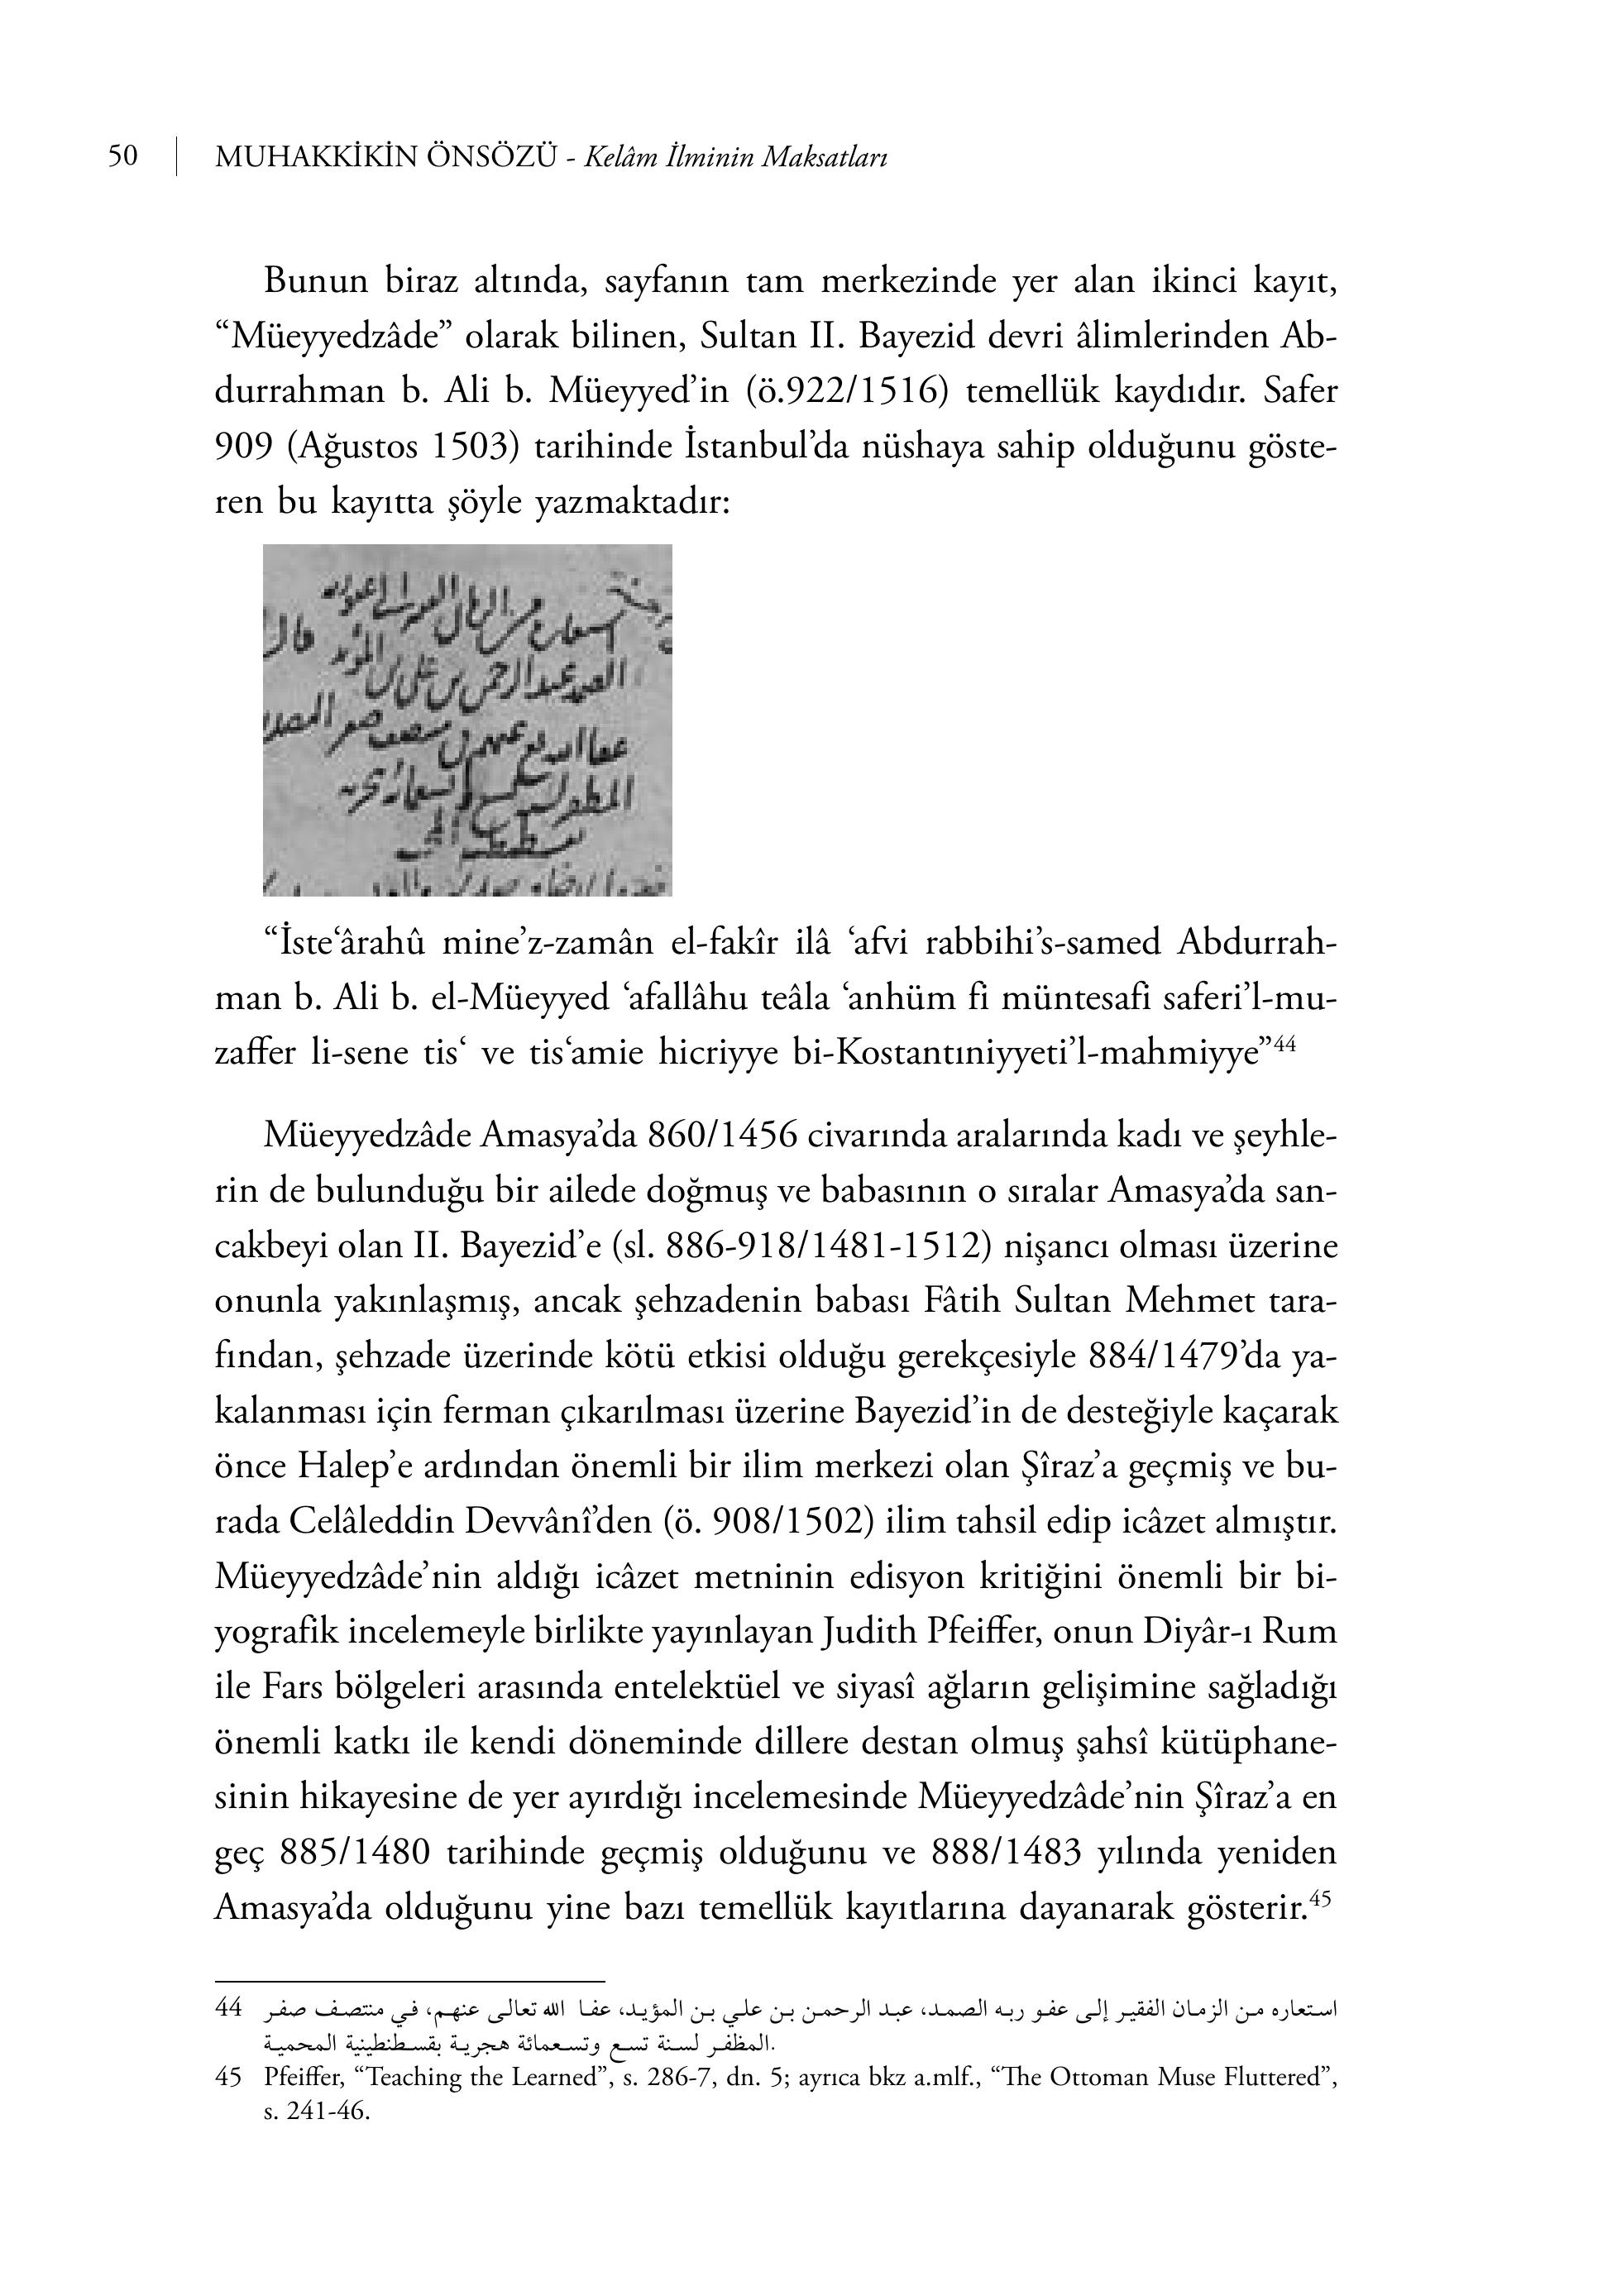 50 MUHAKKİKİN ÖNSÖZÜ - Kelâm İlminin Maksatları
Bunun biraz altında, sayfanın tam merkezinde yer alan ikinci kayıt,
“Müeyyedzâde” olarak bilinen, Sultan II. Bayezid devri âlimlerinden Ab-
durrahman b. Ali b. Müeyyed’in (ö.922/1516) temellük kaydıdır. Safer
909 (Ağustos 1503) tarihinde İstanbul’da nüshaya sahip olduğunu göste-
ren bu kayıtta şöyle yazmaktadır:
“İste‘ârahû mine’z-zamân el-fakîr ilâ ‘afvi rabbihi’s-samed Abdurrah-
man b. Ali b. el-Müeyyed ‘afallâhu teâla ‘anhüm fi müntesafi saferi’l-mu-
zaffer li-sene tis‘ ve tis‘amie hicriyye bi-Kostantıniyyeti’l-mahmiyye”44
Müeyyedzâde Amasya’da 860/1456 civarında aralarında kadı ve şeyhle-
rin de bulunduğu bir ailede doğmuş ve babasının o sıralar Amasya’da san-
cakbeyi olan II. Bayezid’e (sl. 886-918/1481-1512) nişancı olması üzerine
onunla yakınlaşmış, ancak şehzadenin babası Fâtih Sultan Mehmet tara-
fından, şehzade üzerinde kötü etkisi olduğu gerekçesiyle 884/1479’da ya-
kalanması için ferman çıkarılması üzerine Bayezid’in de desteğiyle kaçarak
önce Halep’e ardından önemli bir ilim merkezi olan Şîraz’a geçmiş ve bu-
rada Celâleddin Devvânî’den (ö. 908/1502) ilim tahsil edip icâzet almıştır.
Müeyyedzâde’nin aldığı icâzet metninin edisyon kritiğini önemli bir bi-
yografik incelemeyle birlikte yayınlayan Judith Pfeiffer, onun Diyâr-ı Rum
ile Fars bölgeleri arasında entelektüel ve siyasî ağların gelişimine sağladığı
önemli katkı ile kendi döneminde dillere destan olmuş şahsî kütüphane-
sinin hikayesine de yer ayırdığı incelemesinde Müeyyedzâde’nin Şîraz’a en
geç 885/1480 tarihinde geçmiş olduğunu ve 888/1483 yılında yeniden
Amasya’da olduğunu yine bazı temellük kayıtlarına dayanarak gösterir.45
44 استعاره من الزمان الفقير إلى عفو ربه الصمد، عبد الرحمن بن علي بن المؤيد، عفا الله تعالى عنهم، في منتصف صفر
المظفر لسنة تسع وتسعمائة هجرية بقسطنطينية المحمية.
45 Pfeiffer, “Teaching the Learned”, s. 286-7, dn. 5; ayrıca bkz a.mlf., “The Ottoman Muse Fluttered”,
s. 241-46.